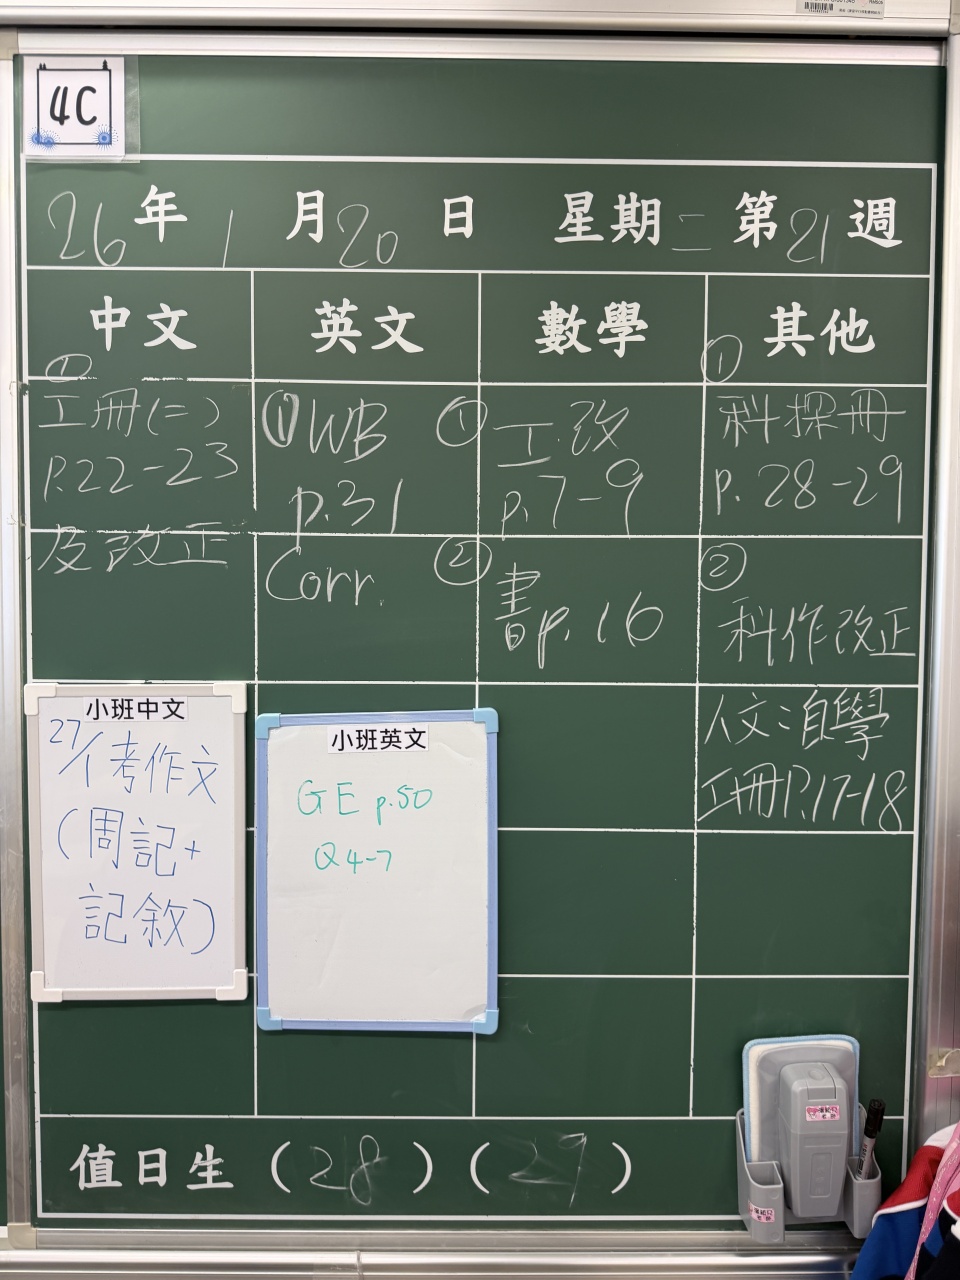 4C
26年1月20日 星期二第21週
中文 英文 數學 其他
①
工冊(二)
P.22-23
及改正
① WB
p.31
Corr.
① 工.改
p.7-9
② 書p.16
①
科探冊
p.28-29
②
科作改正
人文:自學
工冊P.17-18
小班中文
27/1考作文
(周記+
記敘)
小班英文
GE p.50
Q4-7
值日生(28)(29)